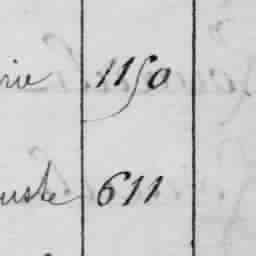 rie 1150
uste 611